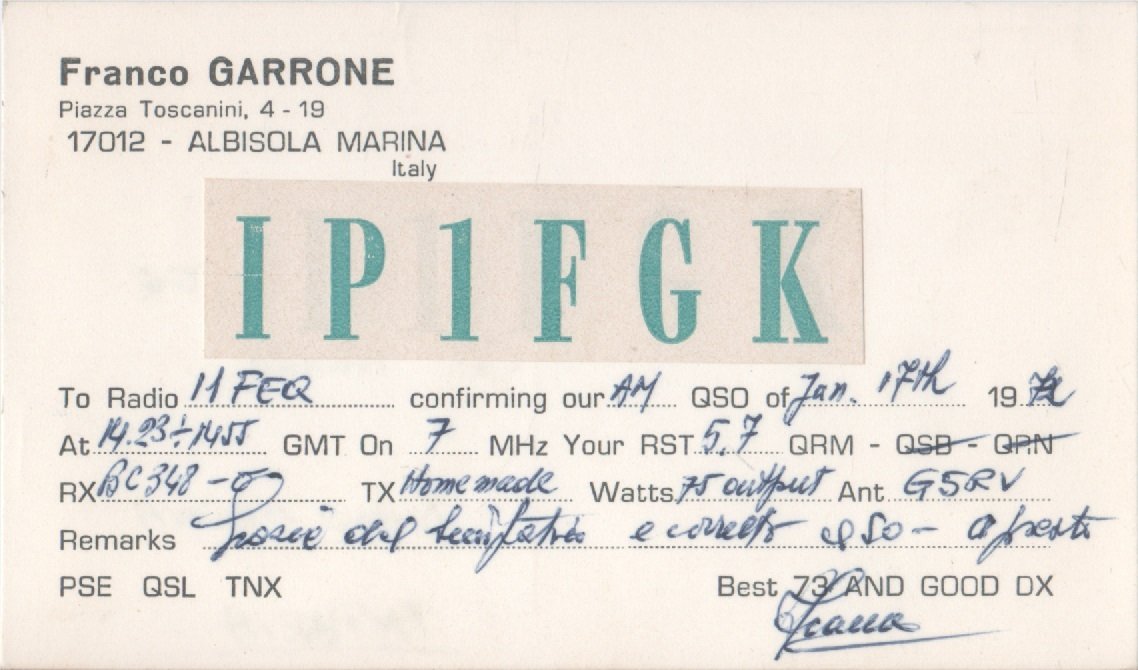 Franco GARRONE
Piazza Toscanini, 4 - 19
17012 - ALBISOLA MARINA
Italy
IP1FGK
To Radio I1 FEQ confirming our AM QSO of Jan. 17th 19
At 14.23÷1455 GMT On 7 MHz Your RST 5.7 QRM - QSB - QRN
RX BC348 - Q TX Homemade Watts 75 output Ant G5RV
Remarks del e QSO -
PSE QSL TNX Best 73 AND GOOD DX
Franco